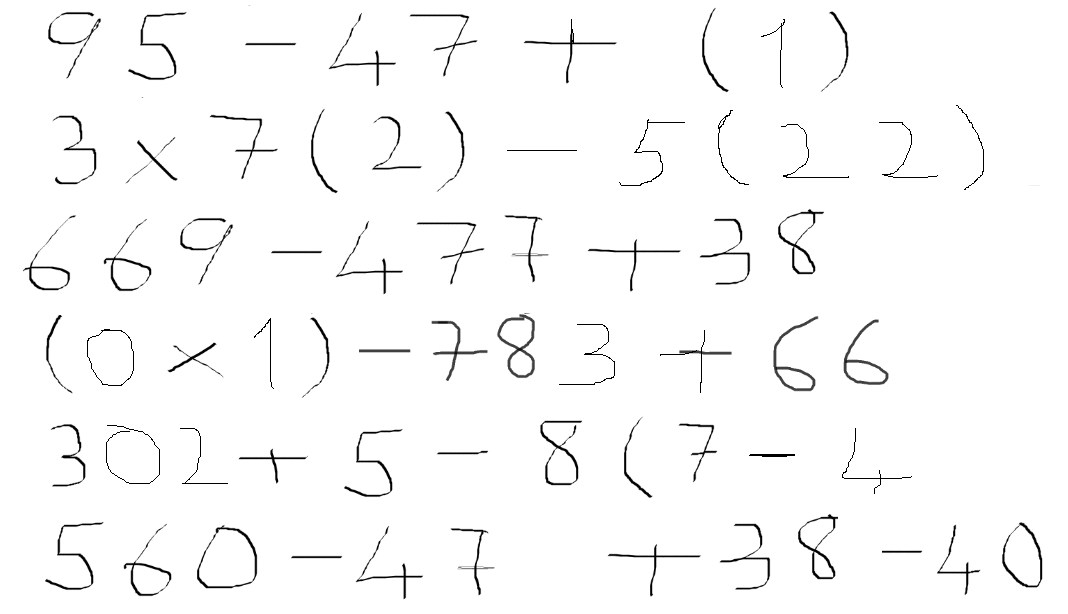 95 - 47 + (1)
3 × 7(2) - 5(22)
669 - 477 + 38
(0 × 1) - 783 + 66
302 + 5 - 8(7 - 4
560 - 47 + 38 - 40